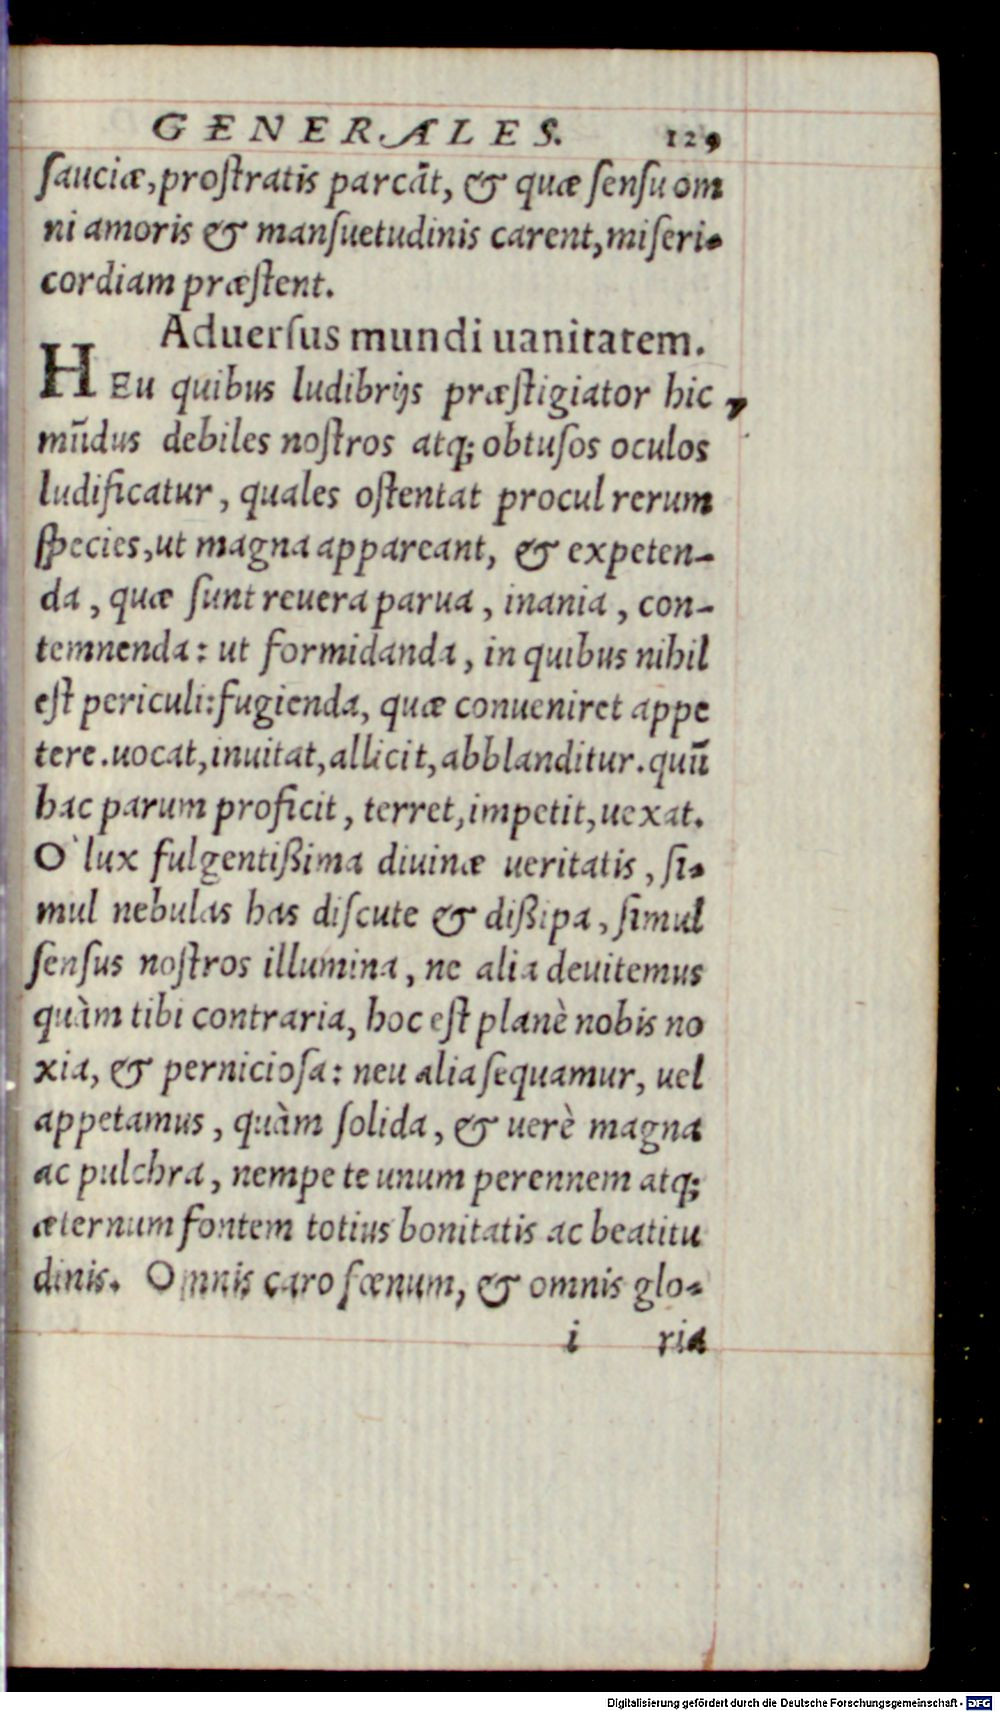 GENERALES. 129
ſauciæ, proſtratis parcāt, & quæ ſenſu om
ni amoris & manſuetudinis carent, miſeri-
cordiam præſtent.
Aduerſus mundi uanitatem.
HEu quibus ludibrijs præſtigiator hic
mūdus debiles noſtros atq; obtuſos oculos
ludificatur, quales oſtentat procul rerum
ſpecies, ut magna appareant, & expeten-
da, quæ ſunt reuera parua, inania, con-
temnenda: ut formidanda, in quibus nihil
eſt periculi: fugienda, quæ conueniret appe
tere. uocat, inuitat, allicit, abblanditur. quū
hac parum proficit, terret, impetit, uexat.
O` lux fulgentißima diuinæ ueritatis, ſi-
mul nebulas has diſcute & dißipa, ſimul
ſenſus noſtros illumina, ne alia deuitemus
quàm tibi contraria, hoc eſt planè nobis no
xia, & pernicioſa: neu alia ſequamur, uel
appetamus, quàm ſolida, & uerè magna
ac pulchra, nempe te unum perennem atq;
æternum fontem totius bonitatis ac beatitu
dinis. Omnis caro fœnum, & omnis glo-
i ria
Digitalisierung gefördert durch die Deutsche Forschungsgemeinschaft - DFG